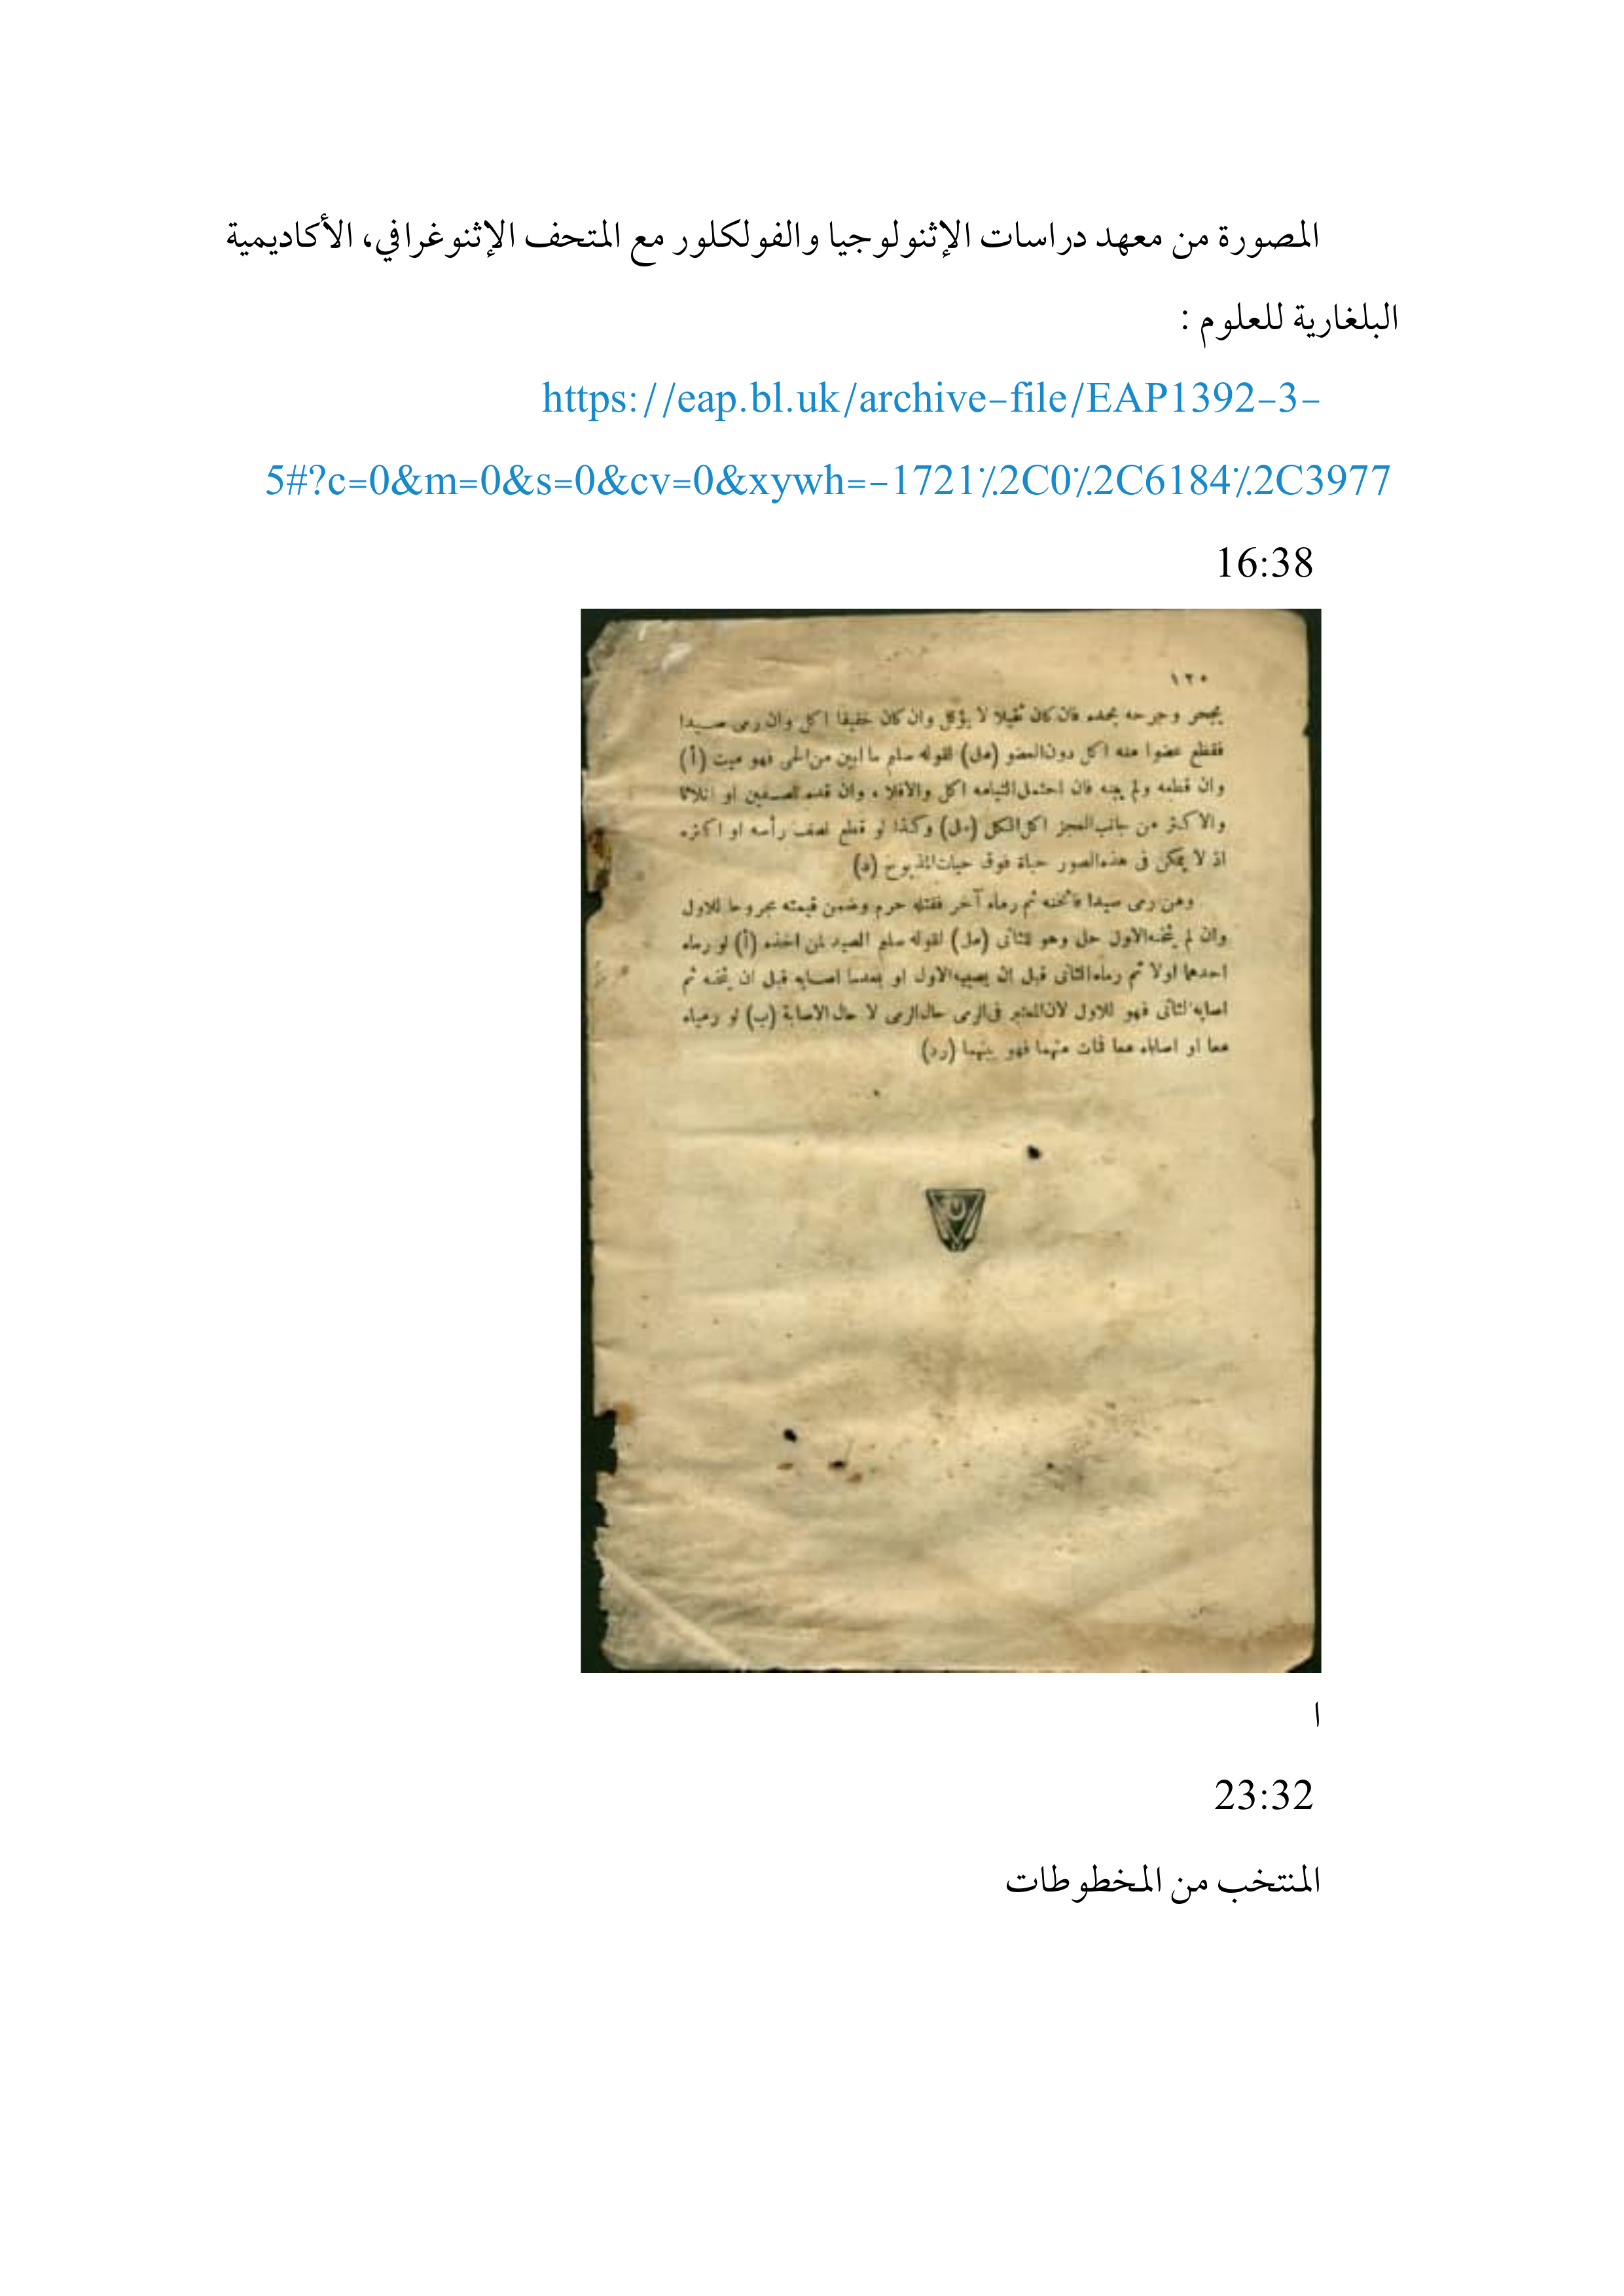 المصورة من معهد دراسات الإثنولوجيا والفولكلور مع المتحف الإثنوغرافي، الأكاديمية
البلغارية للعلوم :
https://eap.bl.uk/archive-file/EAP1392-3-
5#?c=0&m=0&s=0&cv=0&xywh=-1721٪2C0٪2C6184٪2C3977
16:38
١٢٠
بحجر وجرحه بحده فان كان ثقيلا لا يؤكل وان كان خفيفا اكل وان رمى صيدا
فقطع عضوا منه اكل دون العضو (مل) لقوله سلم ما ابين من الحى فهو ميت (أ)
وان قطعه ولم يبنه فان احتمل التيامه اكل والافلا ، وان قده نصفين او اثلاثا
والاكثر من جانب العجز اكل الكل (مل) وكذا لو قطع نصف رأسه او اكثره
اذ لا يمكن فى هذه الصور حياة فوق حيات المذبوح (د)
ومن رمى صيدا فاثخنه ثم رماه آخر فقتله حرم وضمن قيمته مجروحا للاول
وان لم يثخنه الاول حل وهو للثانى (مل) لقوله سلم الصيد لمن اخذه (أ) لو رماه
احدهما اولا ثم رماه الثانى قبل ان يصيبه الاول او بعدما اصابه قبل ان يثخنه ثم
اصابه الثانى فهو للاول لان المعتبر فى الرمى حال الرمى لا حال الاصابة (ب) لو رمياه
معا او اصاباه معا فمات منهما فهو بينهما (رد)
ا
23:32
المنتخب من المخطوطات